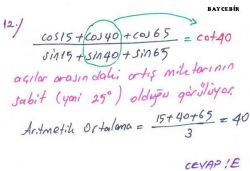 BAYCEBİR
12.) cos15 + cos40 + cos65 / sin15 + sin40 + sin65 = cot40
açılar arasındaki artış miktarının
sabit (yani 25°) olduğu görülüyor.
Aritmetik Ortalama = 15+40+65 / 3 = 40
CEVAP: E